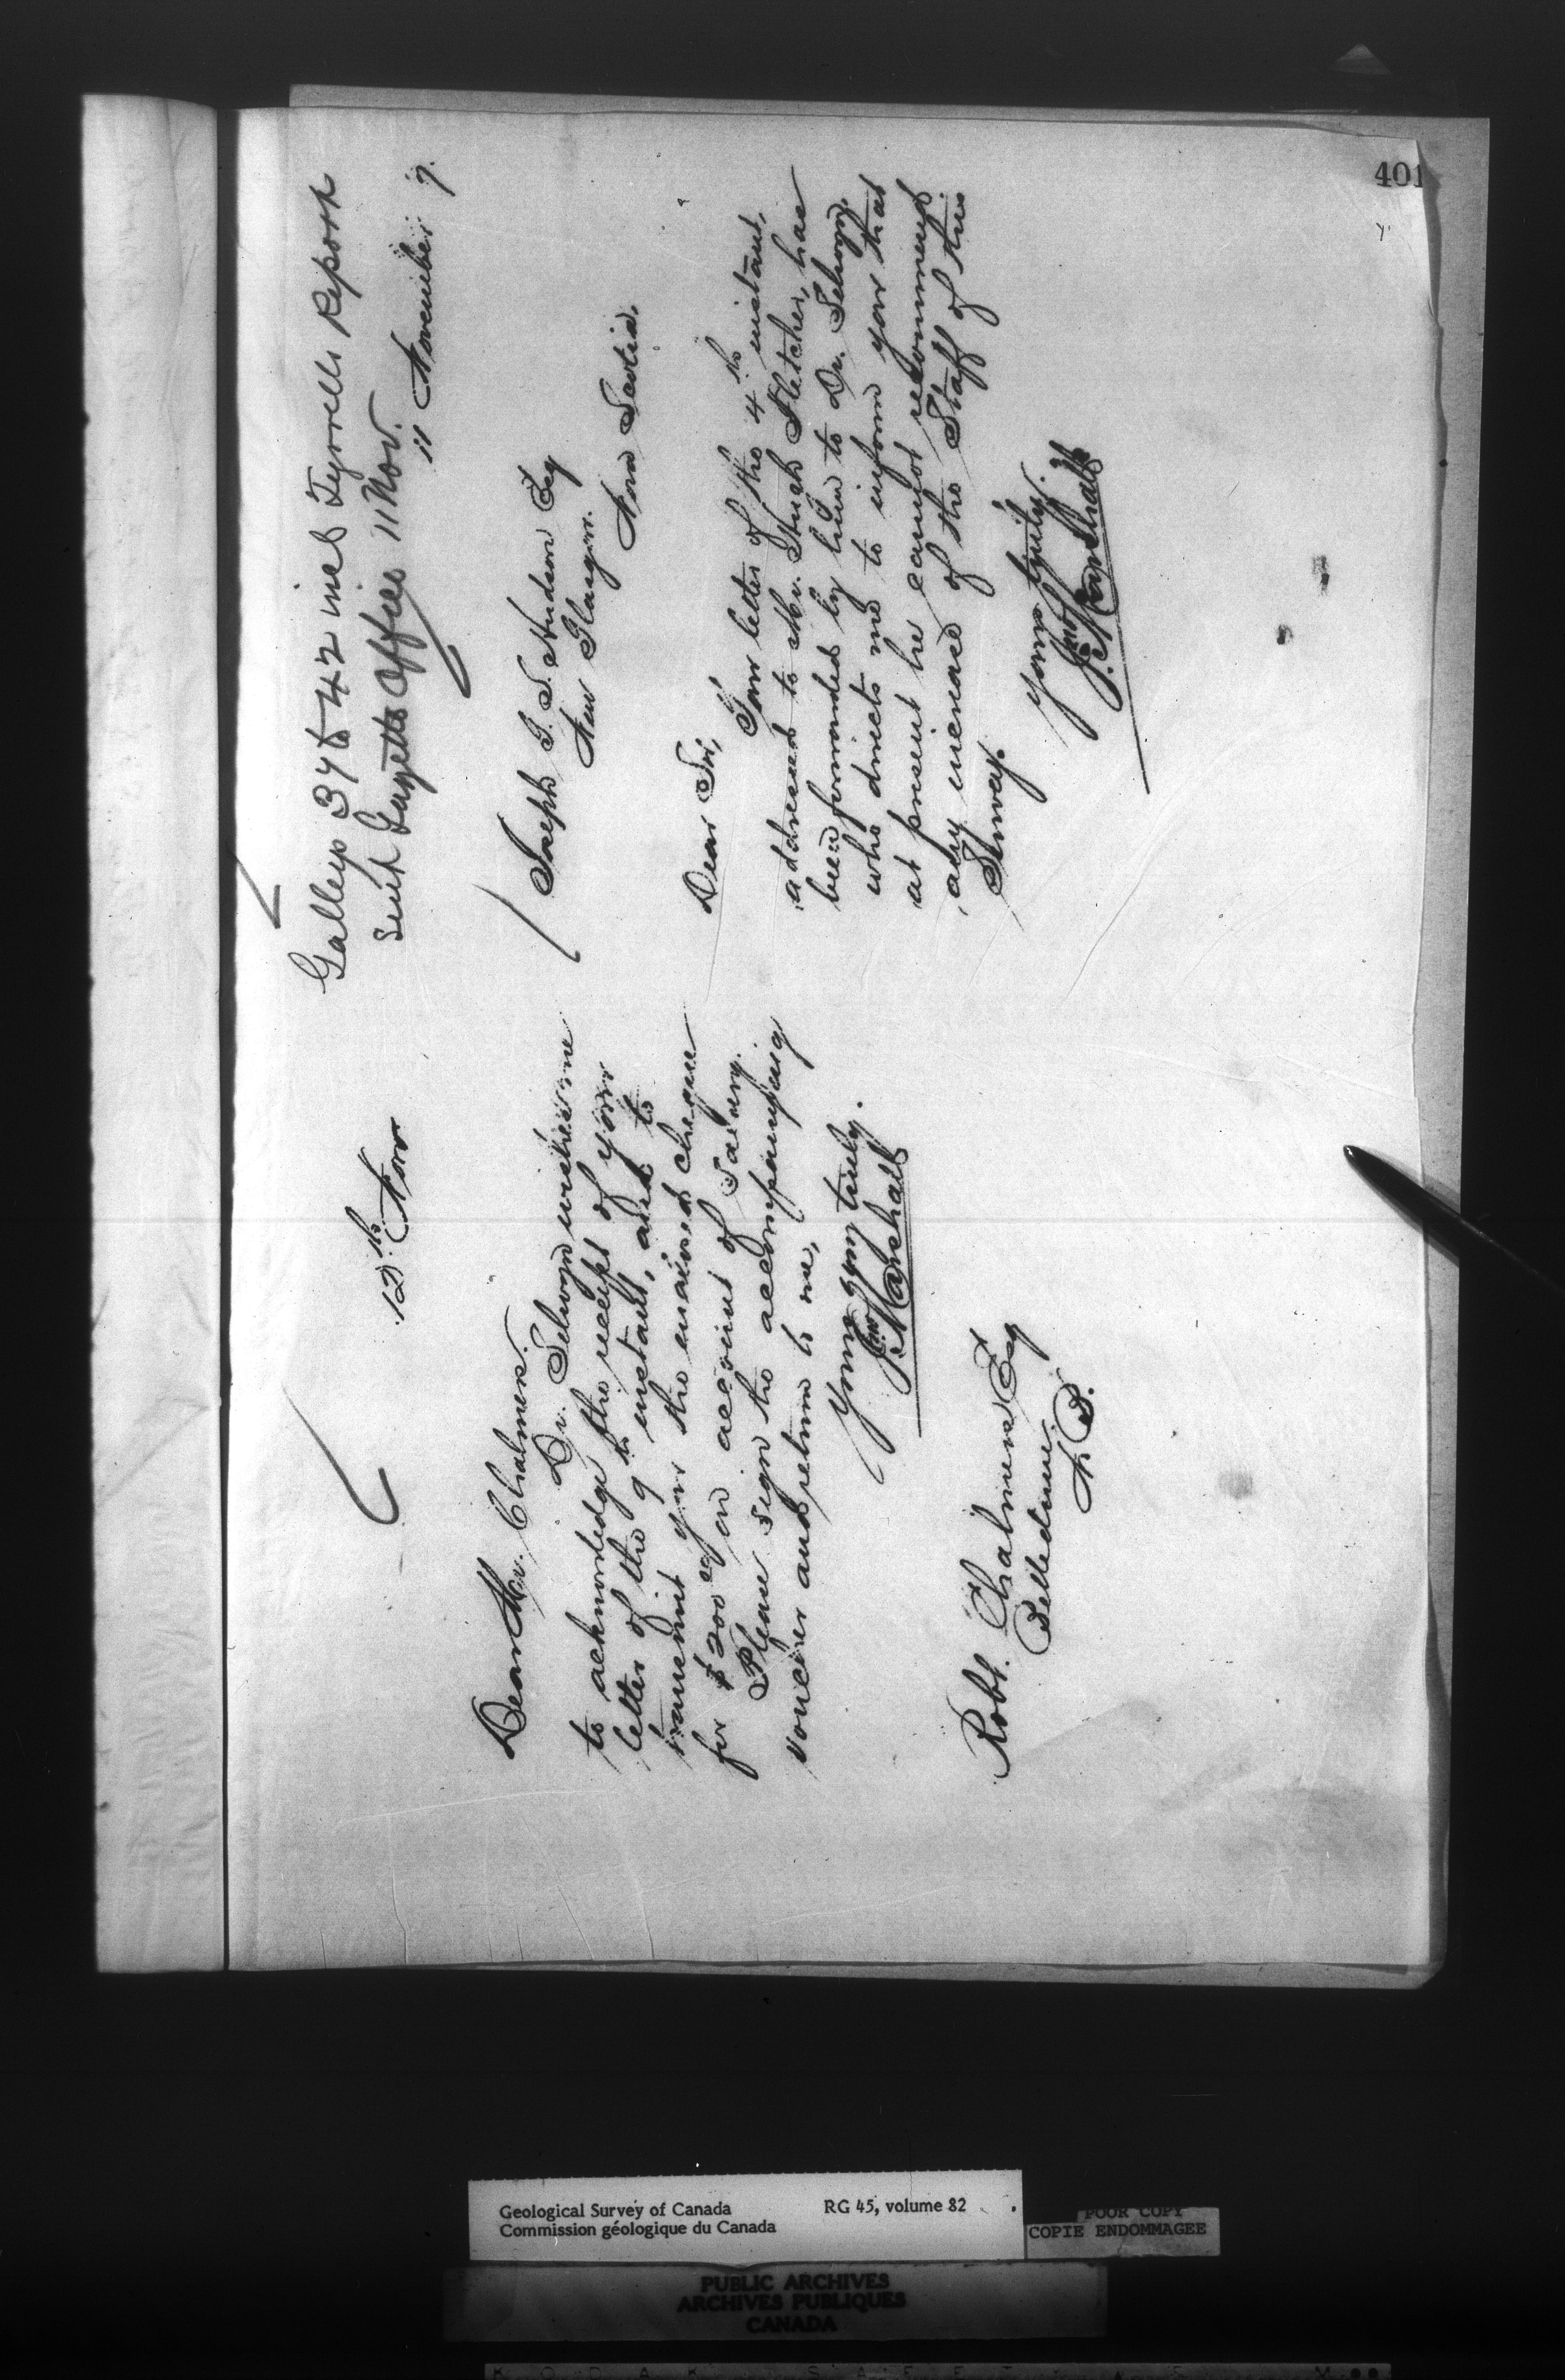 401
12th Nov
Dear Mr. Chalmers.
Dr. Selwyn wishes me
to acknowledge the receipt of your
letter of the 9th instant, and to
transmit you the enclosed cheque
for $200 on account of Salary.
Please sign the accompanying
voucher and return to me,
Yours very truly.
Jno Marshall
Robt. Chalmers Esq
Belledune.
N B.
Galleys 37 42 incl Tyrrells Report
Sent Gazette Office 11 Nov.
11 November 7.
Joseph G. S. Hudson Esq
New Glasgow.
Nova Scotia.
Dear Sir,
Your letter of the 4th instant,
addressed to Mr. Hugh Fletcher, has
been forwarded by him to Dr. Selwyn,
who directs me to inform you that
at present he cannot recommend
any increase of the Staff of this
Survey.
Yours truly.
Jno Marshall
Geological Survey of Canada RG 45, volume 82
Commission géologique du Canada
POOR COPY
COPIE ENDOMMAGEE
PUBLIC ARCHIVES
ARCHIVES PUBLIQUES
CANADA